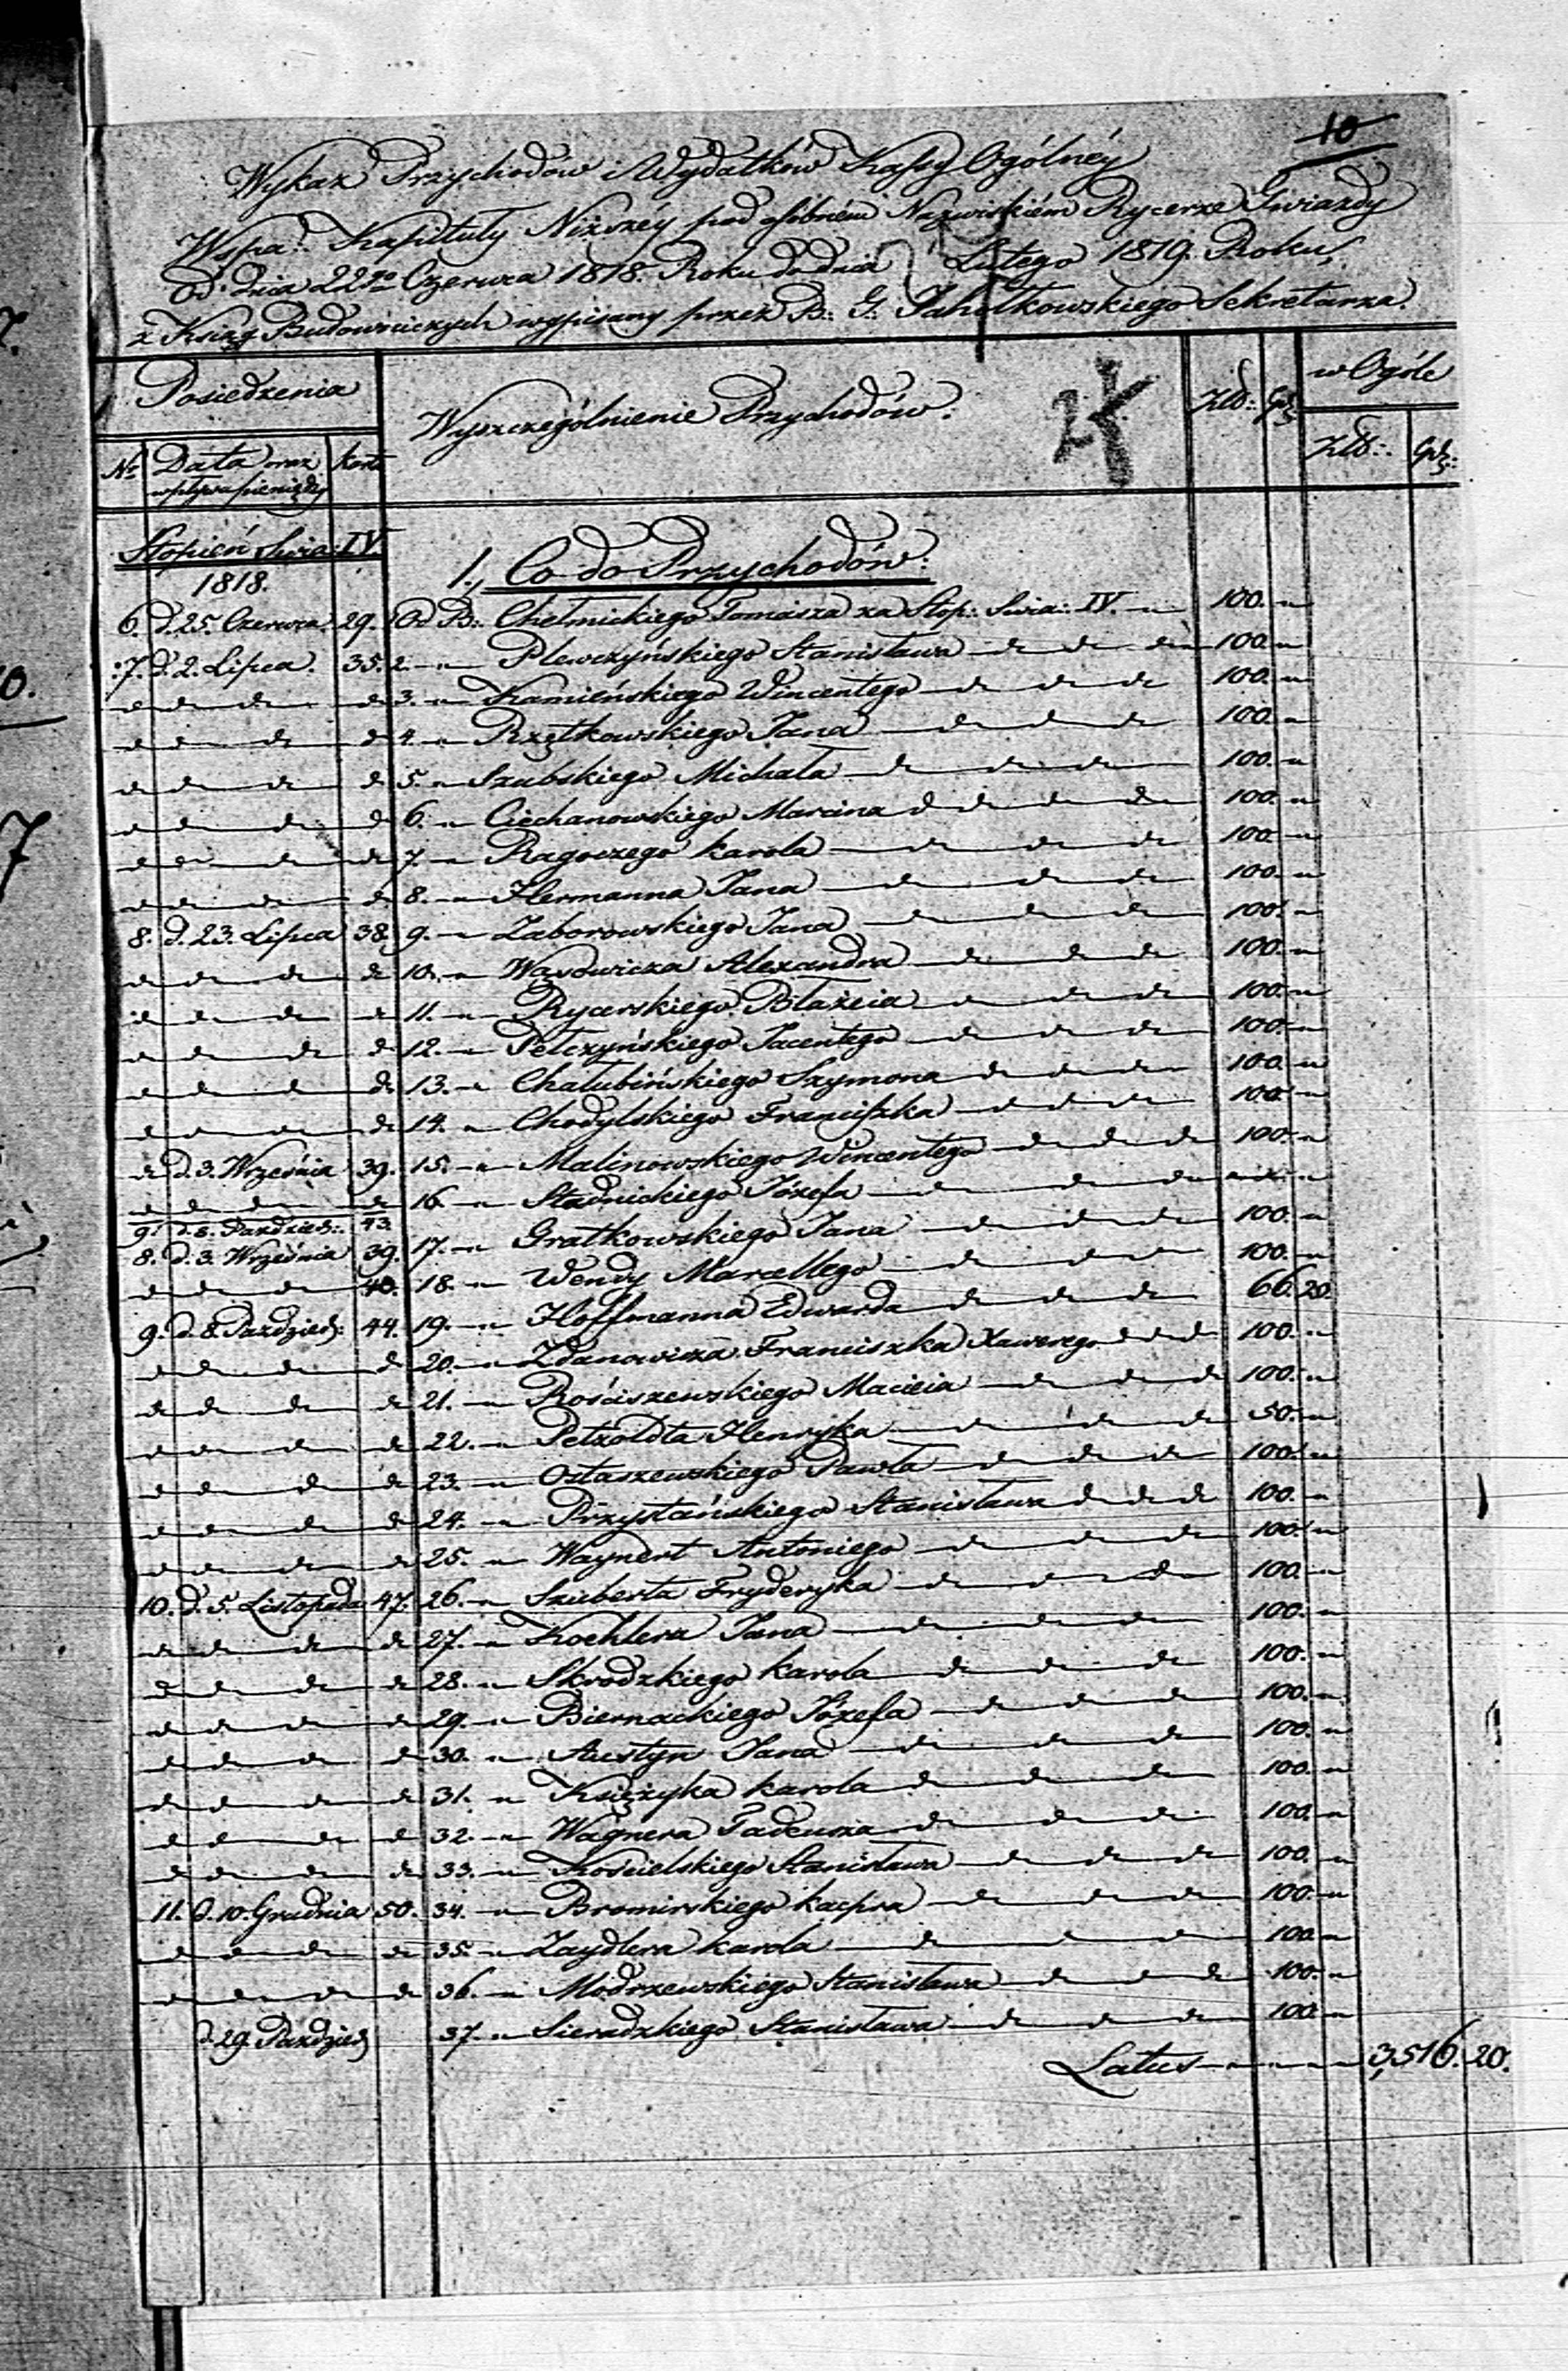 10
Wykaz Przychodów i Wydatków Kassy Ogólnéy
Wspa: Kapituły Niższéy pod osóbném Nazwiskiém Rycerze Gwiazdy
od dnia 22go Czerwca 1818. Roku do dnia Lutego 1819. Roku,
z Ksiąg Budowniczych wypisany przez B: G: Sekretarza.
Posiedzenia Wyszczególnienie Przychodów. Złó: Gr: w Ogóle
No Data oraz wpływ pieniędzy Karta Złó: Gr:
Stopień Swia: IV
1818. 1., Co do Przychodów:
6. d. 25. Czerwca. 29. 1 Od B: Chełmickiego Tomasza za Stop: Swia: IV. 100. "
7. d. 2. Lipca. 35. 2. " Plewczyńskiego Stanisława d d d 100. "
d d d d 3. " Kamieńskiego Wincentego d d d 100. "
d d d d 4. " Rzętkowskiego Jana d d d 100. "
d d d d 5. " Szubskiego Michała d d d 100. "
d d d d 6. " Ciechanowskiego Marcina d d d d 100. "
d d d d 7. " Ragoczego Karola d d d 100. "
d d d d 8. " Hermanna Jana d d d 100. "
8. d. 23. Lipca 38. 9. " Zaborowskiego Jana d d d 100. "
d d d d 10. " Wąsowicza Alexandra d d d 100. "
d d d d 11. " Rycerskiego Błażeia d d d 100. "
d d d d 12. " Pełczyńskiego Jacentego d d d 100. "
d d d d 13. " Chałubińskiego Szymona d d d 100. "
d d d d 14. " Chodylskiego Franciszka d d d 100. "
d d. 3. Września 39. 15. " Malinowskiego Wincentego d d d 100. "
d d d d 16. " Stadnickiego Józefa d d d "
9. d. 8. Paździer: 43.
8. d. 3. Września 39. 17. " Gratkowskiego Jana d d d 100. "
d d d 40. 18. " Wendy Marcellego d d d 100. "
9. d. 8. Paździer: 44. 19. " Hoffmanna Edwarda d d d 66. 20.
d d d d 20. " Zdanowicza Franciszka Xawerego d d d 100. "
d d d d 21. " Rościszewskiego Macieia d d d 100. "
d d d d 22. " Petzoldta Henryka d d d 50. "
d d d d 23. " Ostaszewskiego Pawła d d d 100. "
d d d d 24. " Przystańskiego Stanisława d d d 100. "
d d d d 25. " Waynert Antoniego d d d 100. "
10. d. 5. Listopada 47. 26. " Szuberta Fryderyka d d d 100. "
d d d d 27. " Koehlera Jana d d d 100. "
d d d d 28. " Skrodzkiego Karola d d d 100. "
d d d d 29. " Biernackiego Józefa d d d 100. "
d d d d 30. " Austyn Jana d d d 100. "
d d d d 31. " Księżyka Karola d d d 100. "
d d d d 32. " Wagnera Tadeusza d d d 100. "
d d d d 33. " Kościelskiego Stanisława d d d 100. "
11. d. 10. Grudnia 50. 34. " Bromirskiego Kacpra d d d 100. "
d d d d 35. " Zaydlera Karola d d d 100. "
d d d d 36. " Modrzewskiego Stanisława d d d 100. "
d. 29. Paździer 37. " Sieradzkiego Stanisława d d d 100. "
Latus 3,516. 20.